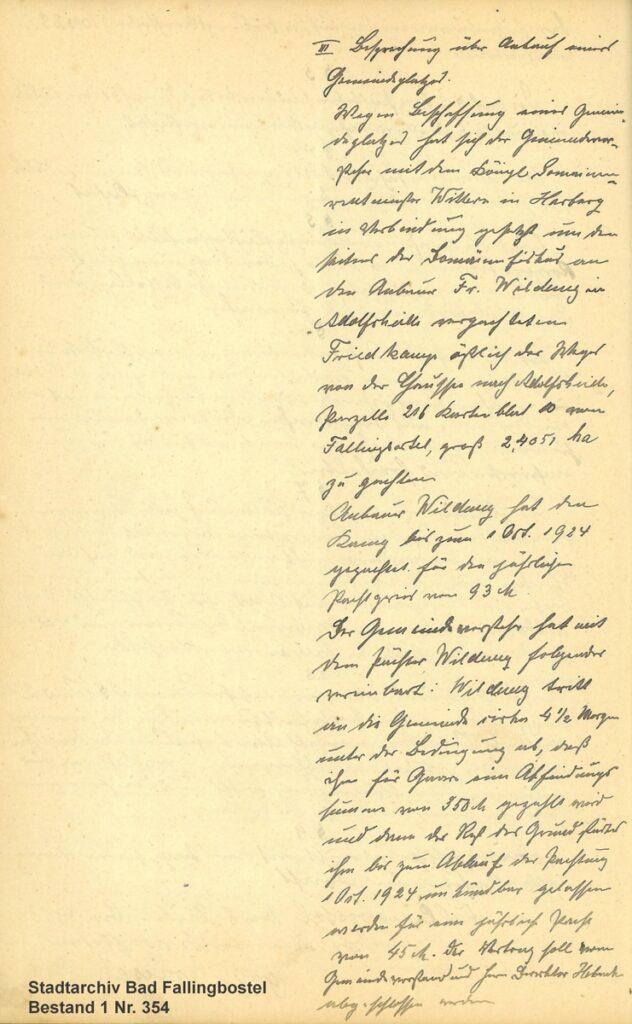 III Besprechung über Ankauf eines
Gemeindeplatzes.
Wegen Beschaffung eines Gemein-
deplatzes hat sich der Gemeindevor-
steher mit dem Königl. Domainen-
rentmeister Willers in Harburg
in Verbindung gesetzt um den
seitens des Domänenfiskus an
den Anbauer Fr. Wildung in
Adolfsheide verpachteten
Friedkamp östlich des Weges
von der Chaussee nach Adolfsheide,
Parzelle 216 Kartenblatt 10 von
Fallingbostel, groß 2,4051 ha
zu pachten
Anbauer Wildung hat den
Kamp bis zum 1 Oct. 1924
gepachtet für den jährlichen
Pachtpreis von 93 M.
Der Gemeindevorsteher hat mit
dem Pächter Wildung folgendes
vereinbart: Wildung tritt
an die Gemeinde cirka 4 1/2 Morgen
unter der Bedingung ab, daß
ihm für eine Abfindungs
summe von 350 M gezahlt wird
und dann der Rest des Grundstückes
ihm bis zum Ablauf der Pachtung
1 Oct. 1924 unkündbar gelassen
werden für eine jährlich Pacht
von 45 M. Der Vertrag soll vom
Gemeindevorstand und Herrn Direktor
abgeschlossen werden
Stadtarchiv Bad Fallingbostel
Bestand 1 Nr. 354